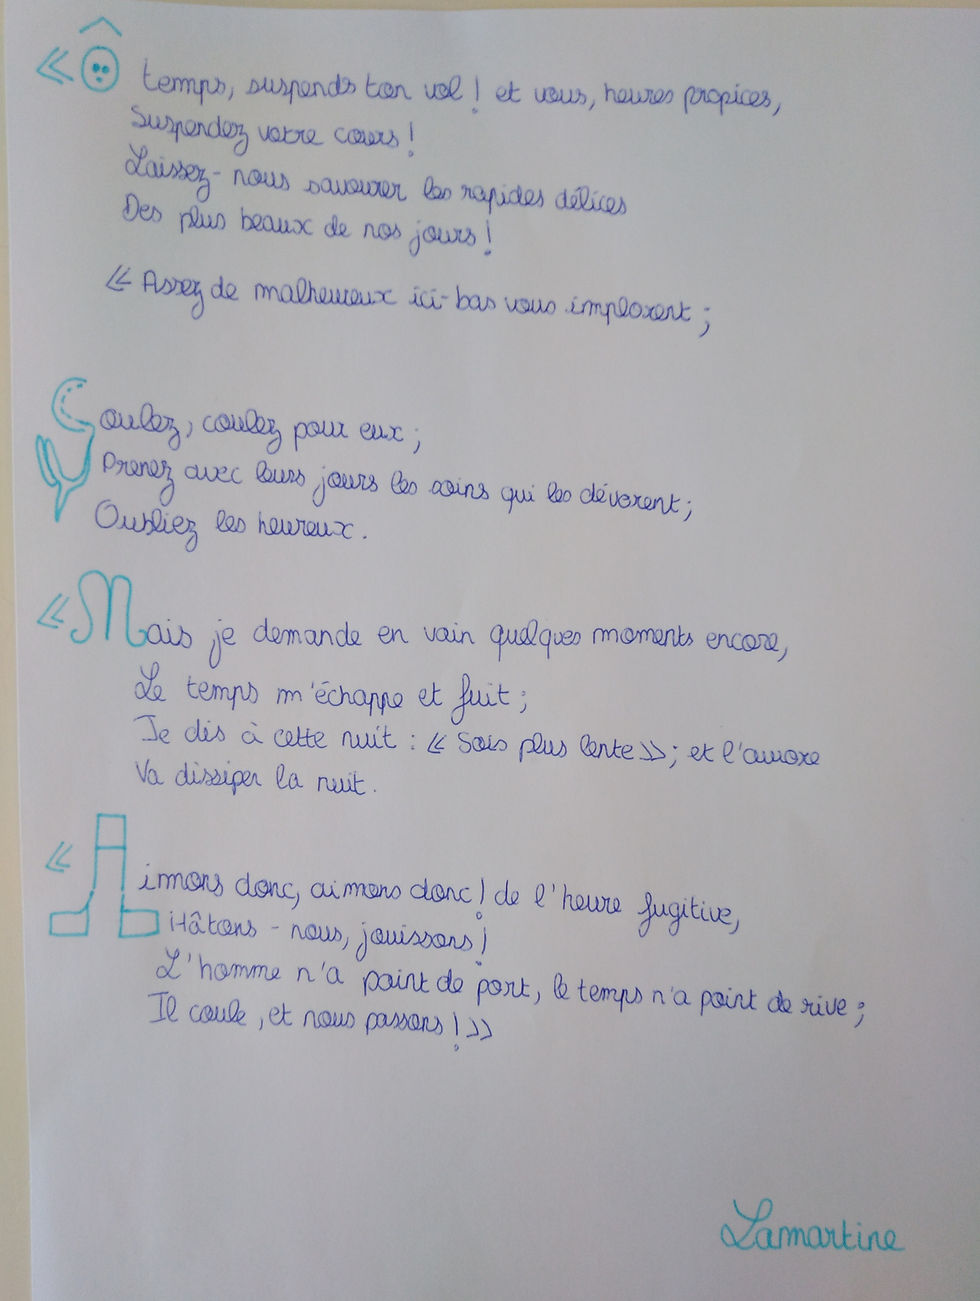 « Ô temps, suspends ton vol ! et vous, heures propices,
Suspendez votre cours !
Laissez-nous savourer les rapides délices
Des plus beaux de nos jours !
« Assez de malheureux ici-bas vous implorent ;
Coulez, coulez pour eux ;
Prenez avec leurs jours les soins qui les dévorent ;
Oubliez les heureux.
« Mais je demande en vain quelques moments encore,
Le temps m'échappe et fuit ;
Je dis à cette nuit : « Sois plus lente » ; et l'aurore
Va dissiper la nuit.
« Aimons donc, aimons donc ! de l'heure fugitive,
Hâtons-nous, jouissons !
L'homme n'a point de port, le temps n'a point de rive ;
Il coule, et nous passons ! »
Lamartine